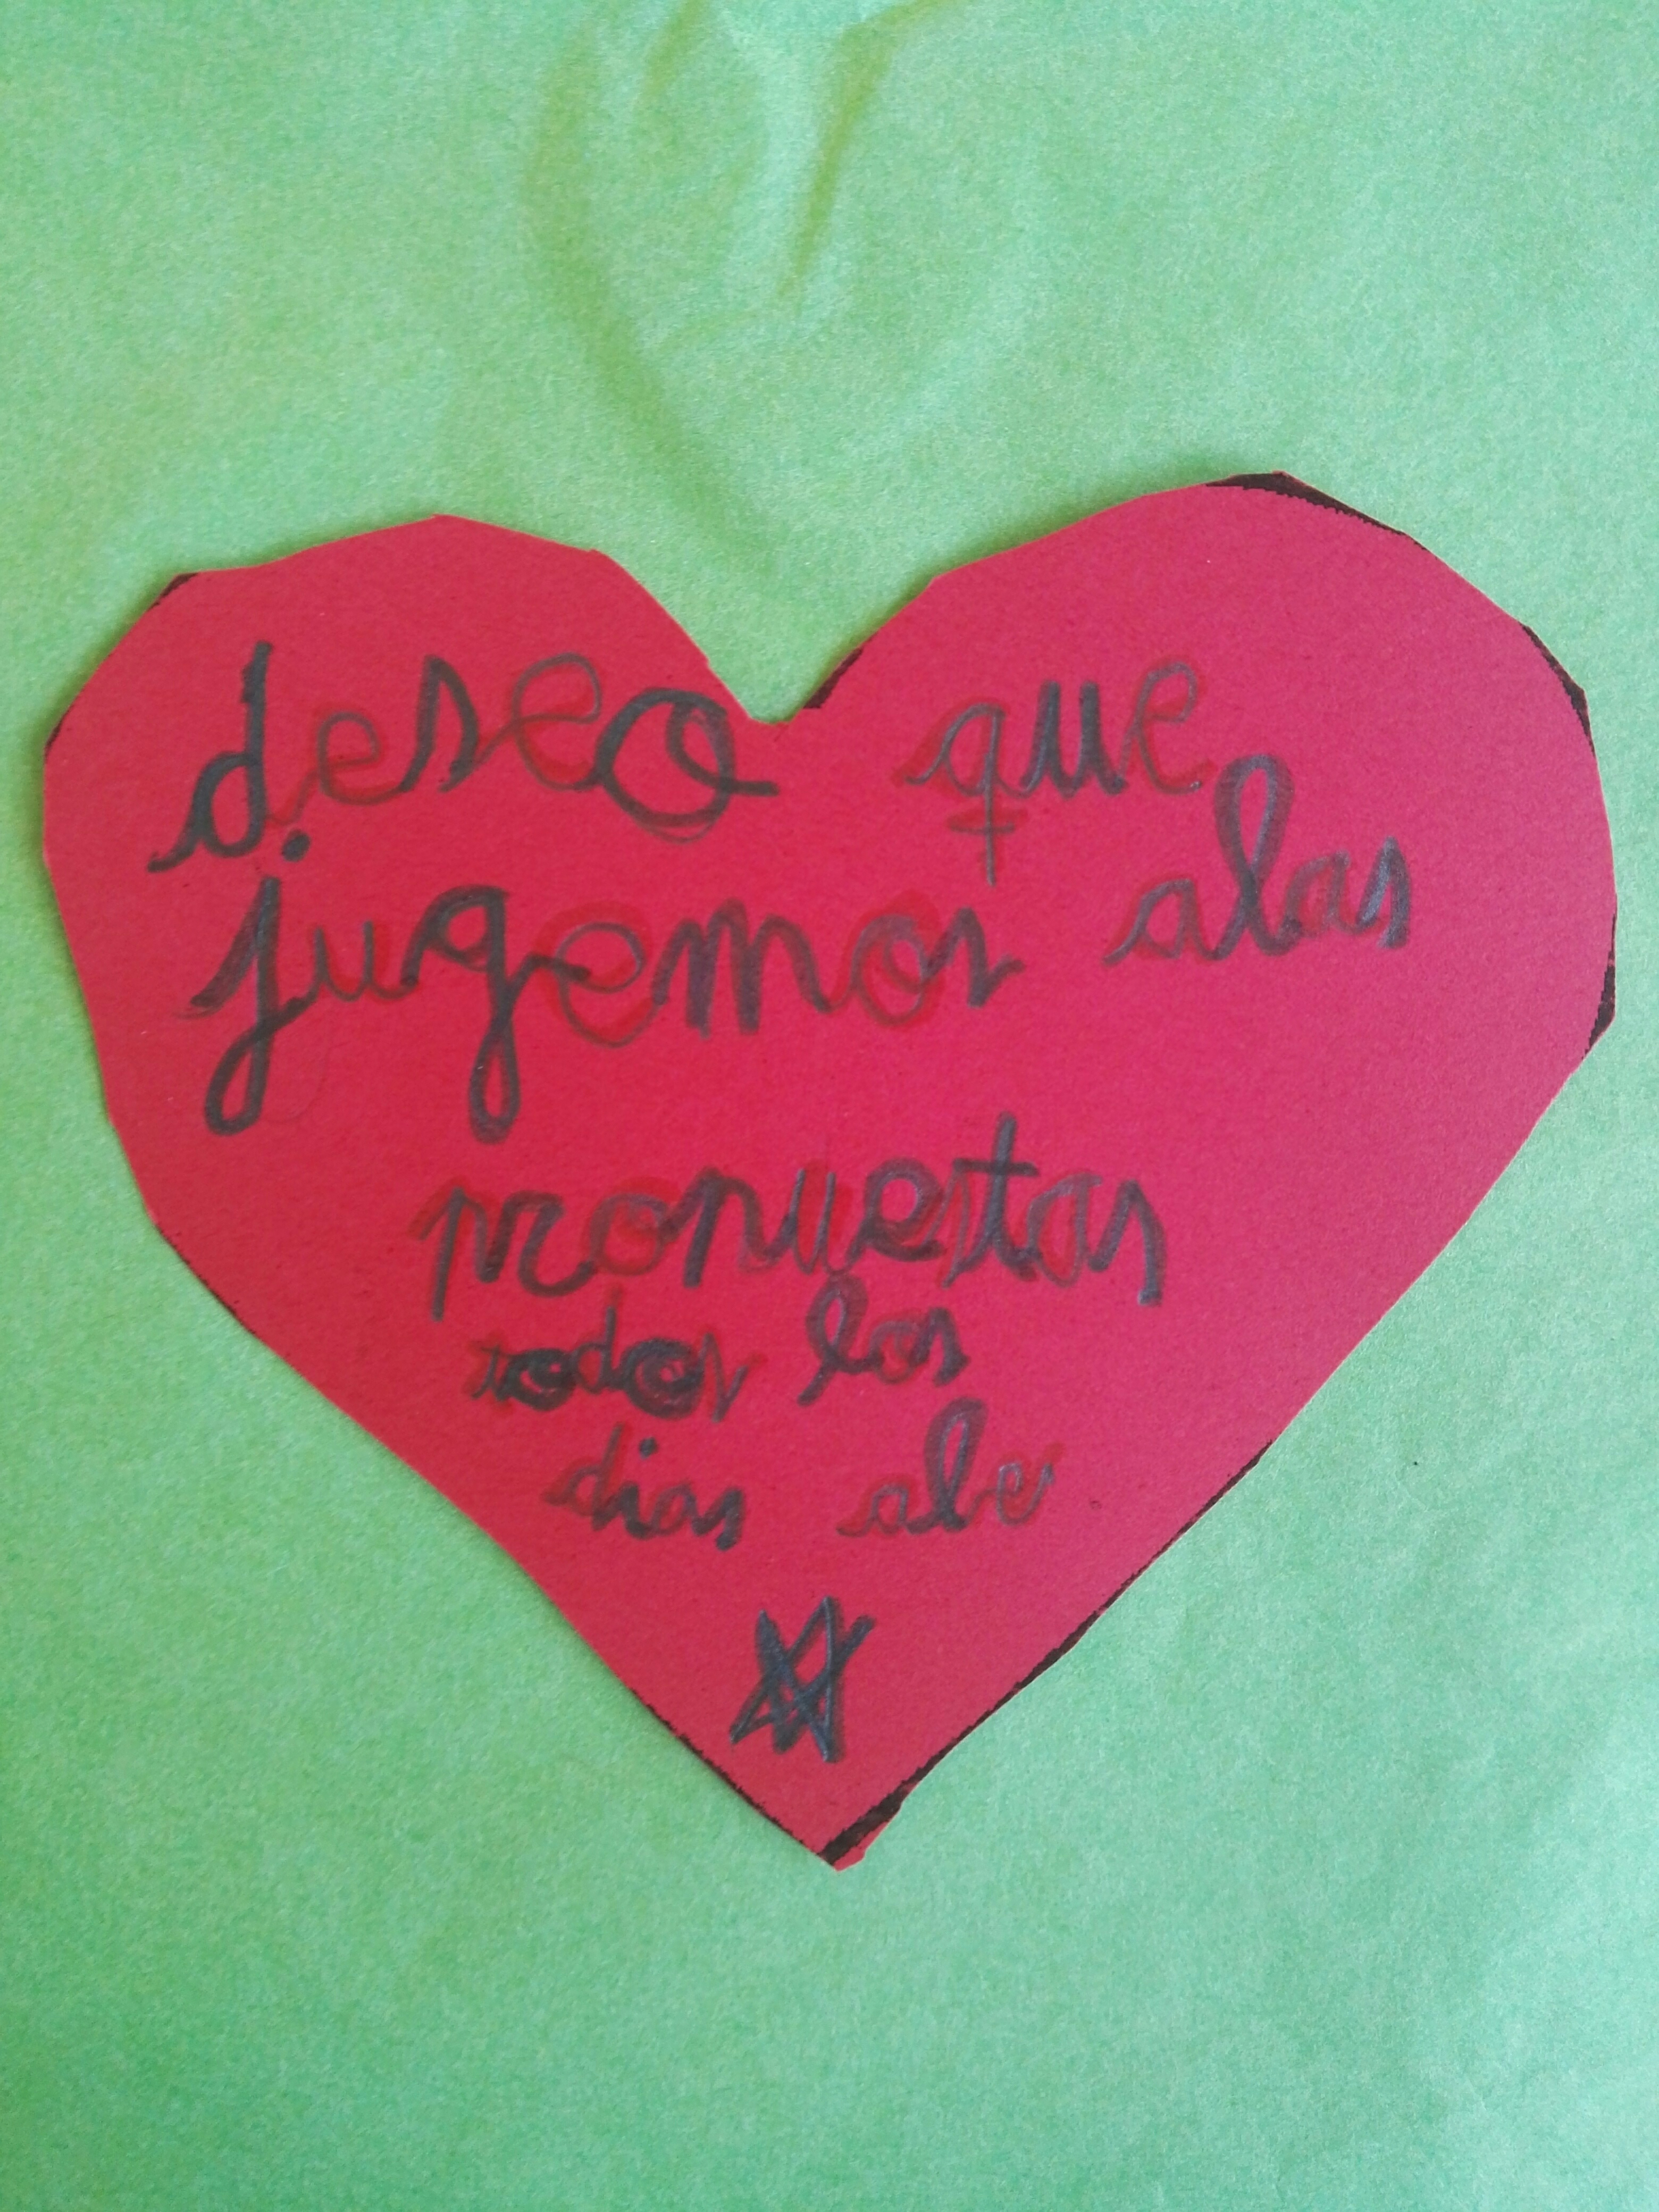 deseo que
jugemos alas
propuestas
todos los
dias ale